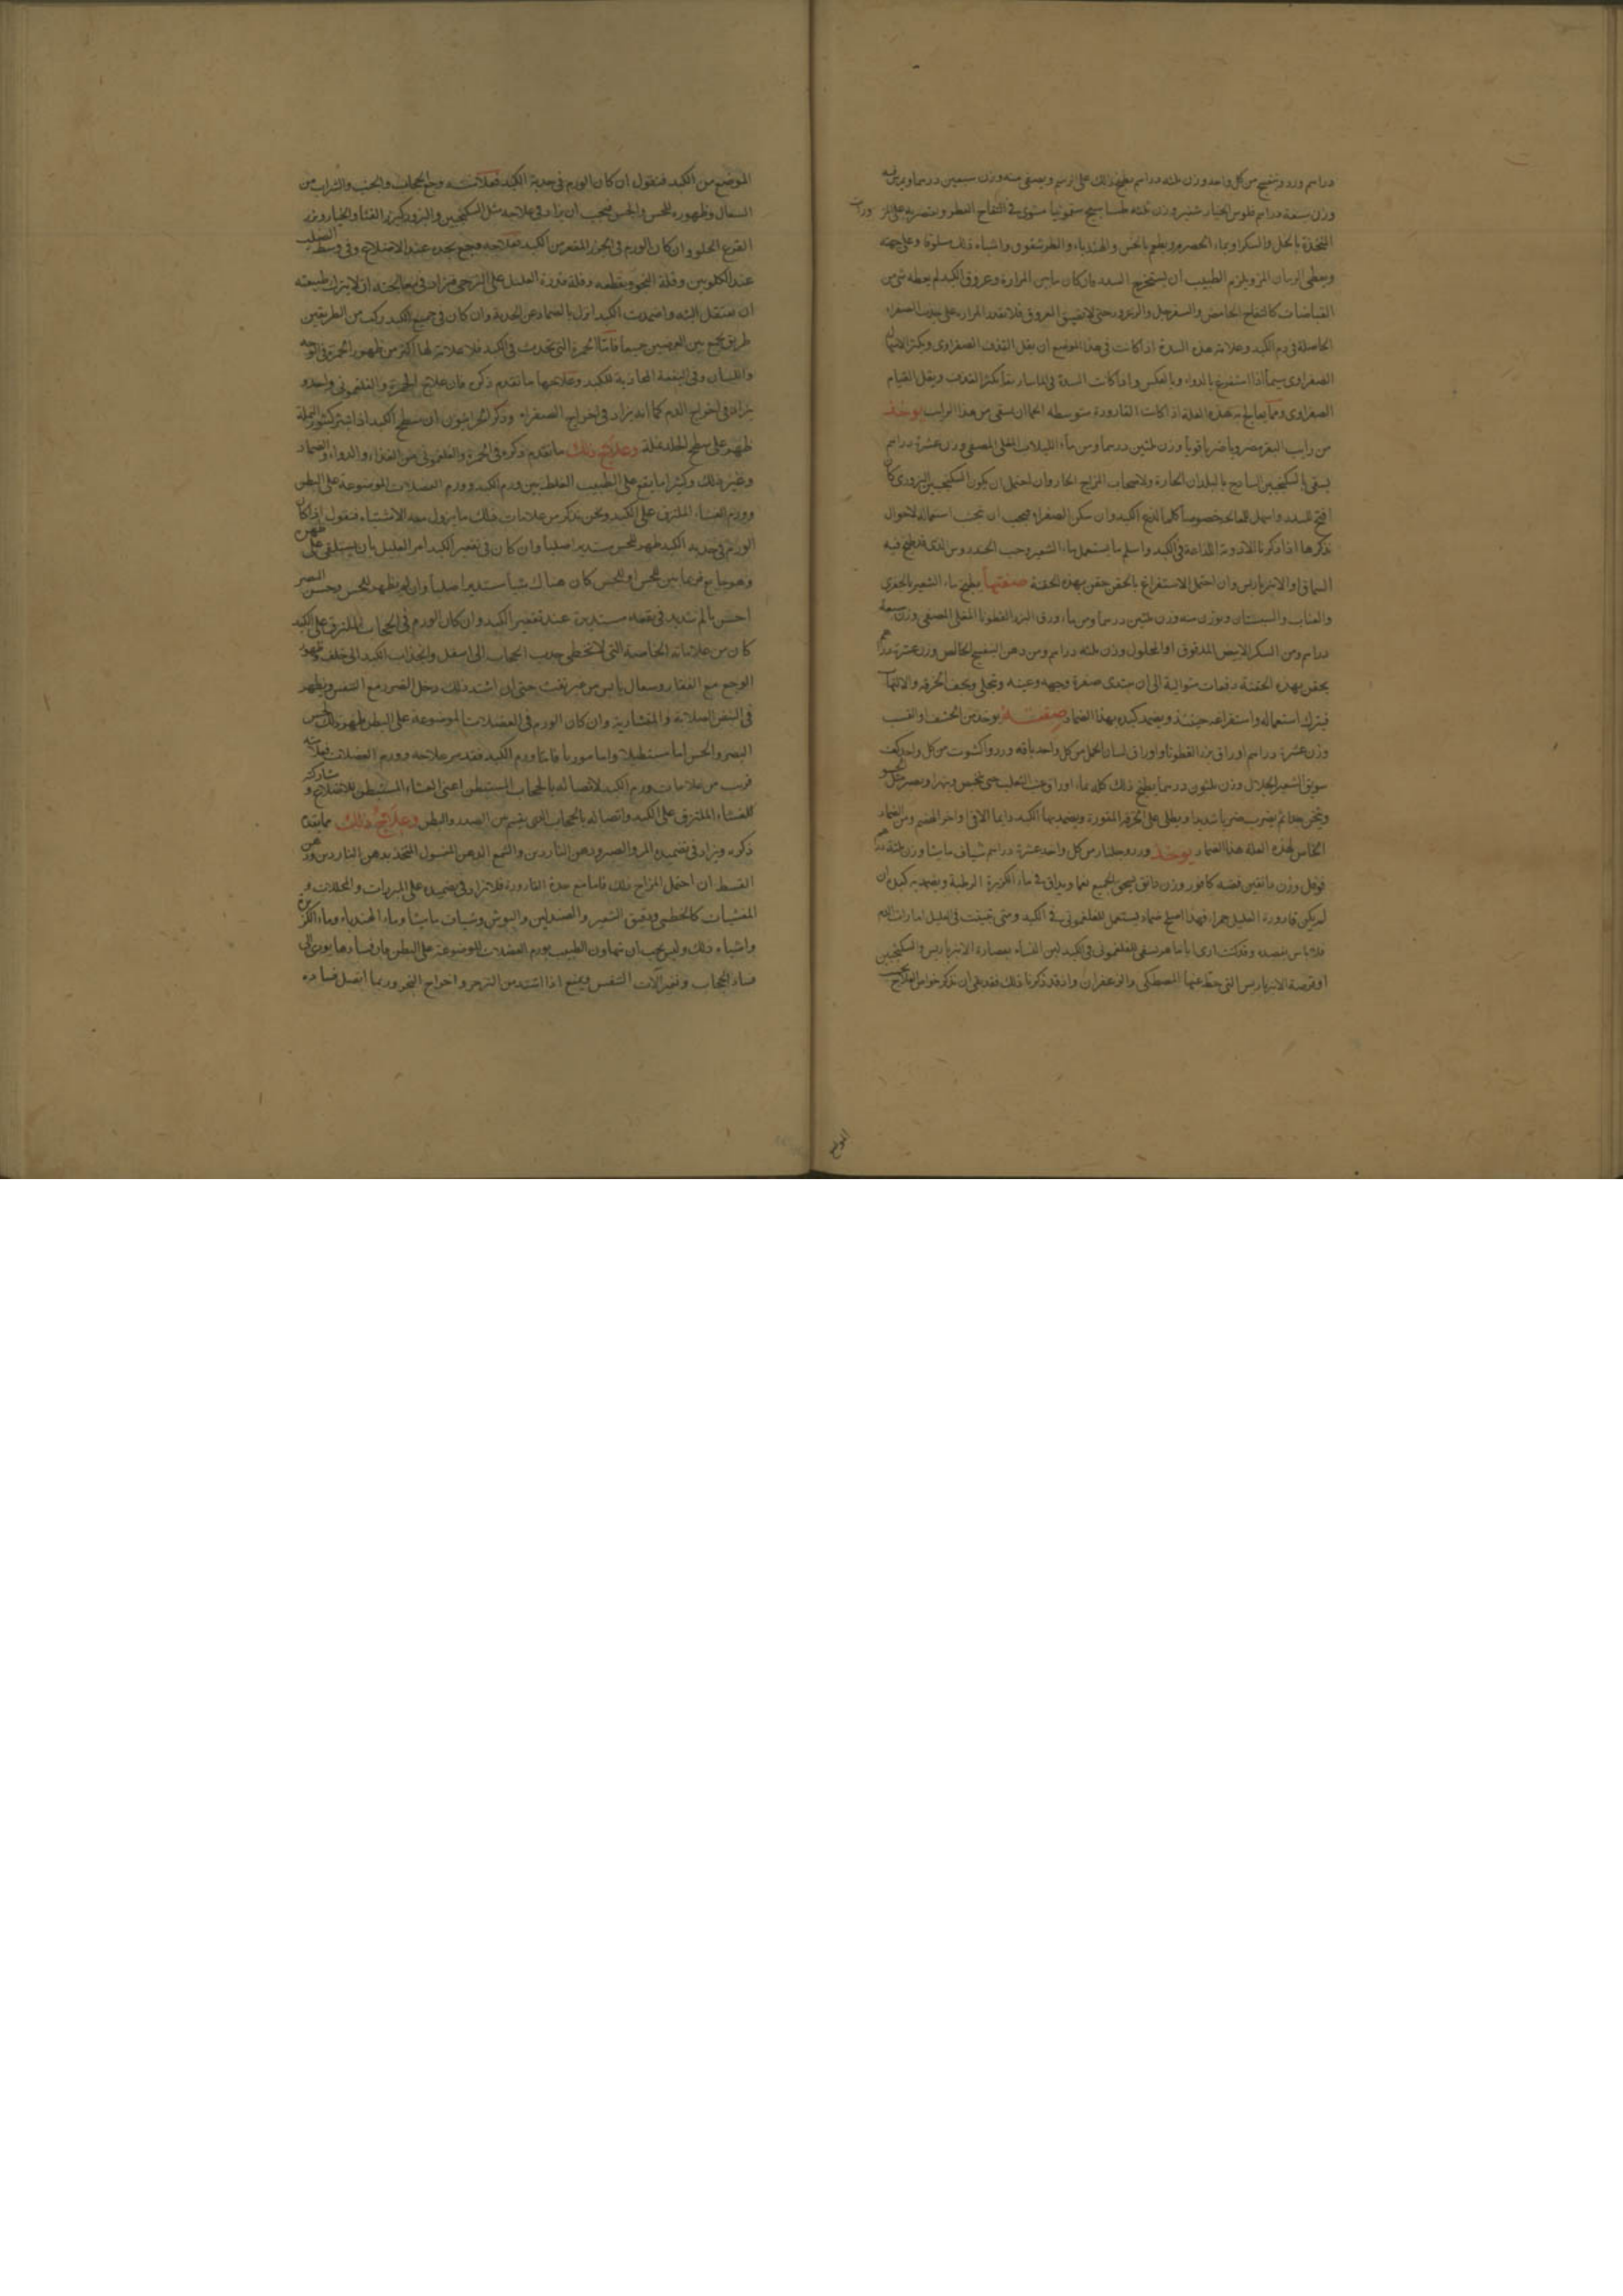 دراهم ورد وبنفسج من كل واحد وزن ثلثه دراهم يطبخ ذلك على الرسم ويصفى منه وزن سبعين درهما ويمرس فيه
وزن سبعة دراهم فلوس الخيار شنبر وزن ثلثه سقمونيا مشوى في التفاح العطر ويقتصر به على
المتخذة بالخل والسكر او بماء الحصرم ويطعم بالخس والهندباء والطرشقوق واشباه ذلك سلوقا وعلى جهته
ويعطى الرمان المز ويلزم الطبيب ان يستخرج السدد فان كان مابين المرارة وعروق الكبد لم يعطه شئ من
القباضات كالتفاح الحامض والسفرجل والزعرور حتى لا تضيق العروق فلا تقدر المرار على جذب الصفراء
الحاصلة فى دم الكبد وعلامة هذه السدة اذا كانت فى هذا الموضع ان يقل القذف الصفراوى ويكثر
الصفراوى سيما اذا استفرغ بالدواء وبالعكس واذا كانت السدة فى الماساريقا يكثر القذف ويقل القيام
الصفراوى ومما يعالج به هذه العلة اذا كانت القارورة متوسطه ان يسقى من هذا الرايب يوخذ
من رايب البقر ويضرب ضربا قويا وزن ثلثين درهما ومن ماء المغلى المصفى وزن عشرة دراهم
يسقى بالسكنجبين الساذج بالبلدان الحارة ولاصحاب المزاج الحار وان احتمل ان يكون السكنجبين البزورى كان
افتح للسدد واسهل للمعالجة خصوصا الكبد وان سكن الصفراء فيجب ان استعماله لاحوال
نذكرها اذا ذكرنا الادوية فى الكبد واسلم ما يستعمل ماء الشعير وحب الذى قد طبخ فيه
السماق او الانبرباريس وان احتمل الاستفراغ بالحقن حقن بهذه الحقنة صفتها يطبخ ماء الشعير
والعناب والسبستان ويوزن منه وزن ثلثين درهما ومن ماء ورق البزرقطونا المغلى المصفى وزن سبعة
دراهم ومن السكر الابيض المدقوق او المحلول وزن ثلثه دراهم ومن دهن البنفسج الخالص وزن عشرة
يحقن بهذه الحقنة دفعات متوالية الى ان صفرة وجهه وعينه وتجلى ويجف
فيترك استعماله واستفراغه حينئذ ويضمد كبده بهذا الضماد صفتـــه يوخذ من
وزن عشرة دراهم اوراق بزر القطونا واوراق لسان الحمل من كل واحد باقه ورد واكشوث من كل واحد كف
سويق الشعير وزن ثلثون درهما يطبخ ذلك كله بماء اوراق عنب الثعلب حتى
ثم يضرب ضربا شديدا ويطلى على الخرقه المقورة ويضمد بها الكبد دايما الا فى اواخر الهضم ومن الضماد
الخاص لهذه العلة هذا الضماد يوخذ ورد وجلنار من كل واحد عشرة دراهم شياف مامیثا وزن ثلثة
فوفل وزن دانقين فضه كافور وزن دانق يسحق الجميع ويداف فى ماء الكزبرة الرطبة ويضمد به كبده ان
لم يكن قارورة العليل حمراء فهذا اصلح ضماد يستعمل للفلغمونى فى الكبد ومتى تبينت فى العليل امارات الدم
فلا باس بفصده وقد كنت ارى اباماهر يسقى للفلغمونى فى الكبد لبن بعصارة الانبرباريس والسكنجبين
او قرصة الانبرباريس التى حط عنها المصطكى والزعفران واذ قد ذكرنا ذلك فقد بقى ان نذكر خواص
الموضع
الموضع من الكبد فنقول ان كان الورم فى حدبة الكبد فعلامته وجع الحجاب والجنب من
السعال وظهوره للحس والجس فيجب ان يزاد فى علاجه مثل السكنجبين والبزور كبزر القثاء والخيار وبزر
القرع الحلو وان كان الورم فى الجزء المقعر من الكبد فعلامته وجع يجده عند الاضلاع وفى وسط الصلب
عند الكلوتين وقلة النجو وتقطعه وقلة قدرة العليل على التزحر فيزاد فى معالجته ان لا يترك طبيعته
ان تعتقل البته وضمدت الكبد انزل بالضماد عن الحدبة وان كان فى جميع الكبد ركب من الطريقين
طريق يجمع بين الغرضين جميعا فاما الحمرة التى تحدث فى الكبد فلا علامة لها اكثر من ظهور الحمرة فى الوجه
واللسان وفى البقعة المحاذية للكبد وعلاجها ما تقدم ذكره فان علاج الحمرة والفلغمونى واحد و
يزاد فى اخراج الدم كما انه يزاد فى اخراج الصفراء وذكر ان سطح الكبد اذا النملة
ظهر على سطح الجلد نملة وعلاج ذلك ما تقدم ذكره فى الحمرة والفلغمونى من الغذاء والدواء والضماد
وغير ذلك وكثيرا ما يقع على الطبيب الغلط بين ورم الكبد وورم العضلات الموضوعة على البطن
وورم الغشاء الملتزق على الكبد ونحن نذكر من علامات ذلك ما يزول معه الاشتباه فنقول اذا كان
الورم فى حدبه الكبد ظهر للجس مستديرا صلبا وان كان فى تقعير الكبد امر العليل بان يستلقى على ظهره
وهو جايع فربما بين للجس او للحس كان هناك شيئا مستديرا صلبا وان لم يظهر للجس وحسن البصر
احس بالم شديد فى بقعه مستديرة عند تقعير الكبد وان كان الورم فى الحجاب الملتزق على الكبد
كان من علاماته الخاصة التى لا تخطى جذب الحجاب الى اسفل وانجذاب الكبد الى خلف وظهور
الوجع مع الفقار وسعال يابس من غير نفث حتى ان اشتد ذلك دخل الضرر مع التنفس ويظهر
فى النبض الصلابة والمنشارية وان كان الورم فى العضلات الموضوعة على البطن ظهر ذلك لحس
البصر والجس اما مستطيلا واما موربا فاما ورم الكبد فقد مر علاجه وورم العضلات فعلامته
قريب من علامات ورم الكبد لاتصاله بالحجاب المستبطن اعنى الغشاء المستبطن للاضلاع و مشاركة
للغشاء الملتزق على الكبد واتصاله بالحجاب الذى يقسم بين الصدر والبطن وعلاج ذلك مما تقدم
ذكره ويزاد فى تضميده المر والصبر ودهن الناردين والشمع الدهن المغسول المتخذ بدهن الناردين ودهن
القسط ان احتمل المزاج ذلك فاما مع حدة القارورة فلا تزاد فى تضميده على المبردات والمحللات و
المفشيات كالخطمى ودقيق الشعير والصندلين والبوش وشياف مامیثا وماء الهندباء وماء الكزبرة
واشباه ذلك وليس يجب ان يتهاون الطبيب بورم العضلات الموضوعة على البطن فان فسادها يودى الى
فساد الحجاب وتضر آلات التنفس ويمنع اذا اشتد من التزحر واخراج النجو وربما اتصل فساده